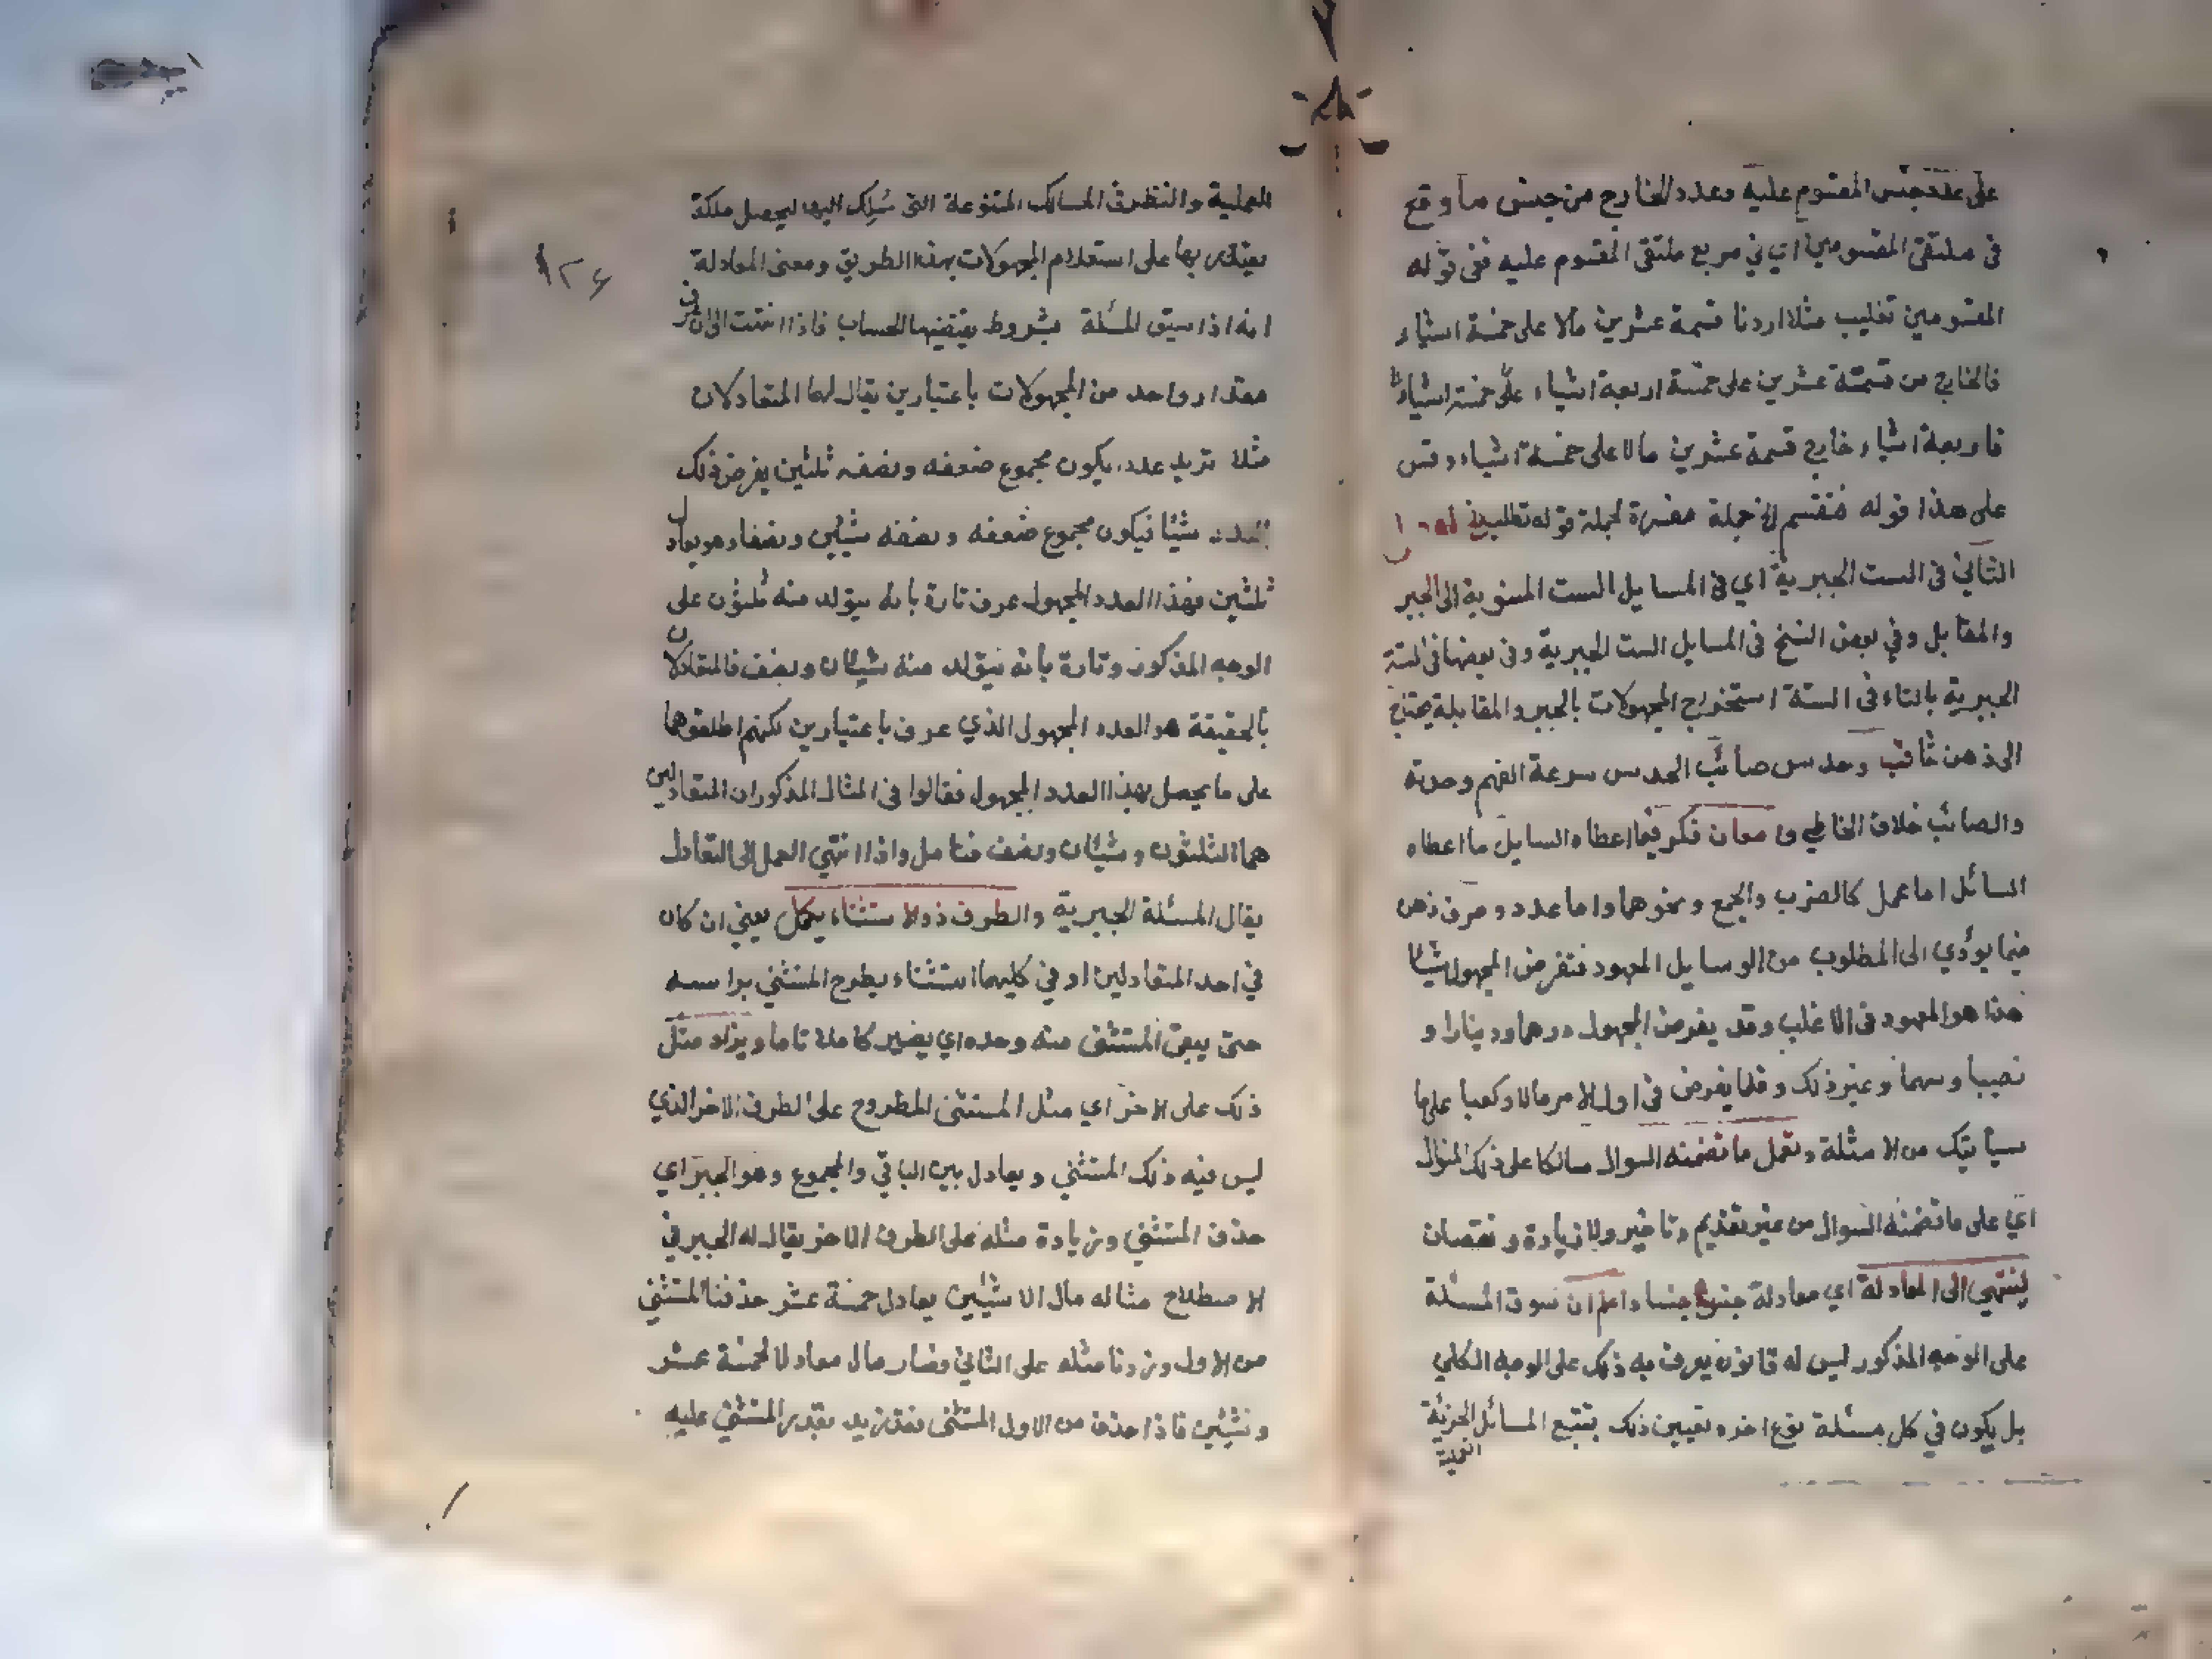 على عدد جنس المقسوم عليه وعدد الخارج من جنس ما وقع
فى ملتقى المقسومين اي في مربع ملتقى المقسوم عليه ففى قوله
المقسومين تغليب مثلا اردنا قسمة عشرين مالا على خمسة اشياء
فالخارج من قسمة عشرين على خمسة اربعة اشياء على خمسة اشياء
فاربعة اشياء خارج قسمة عشرين مالا على خمسة اشياء وقس
على هذا قوله فنقسم الخ جملة مفسرة لجملة قوله تطلب
الثاني فى الست الجبرية اي فى المسايل الست المنسوبة الى الجبر
والمقابل وفي بعض النسخ فى المسايل الست الجبرية وفى بعضها فى الستة
الجبرية بالتاء فى الستة استخراج المجهولات بالجبر والمقابلة يحتاج
الى ذهن ثاقب وحدس صائب الحدس سرعة الفهم وحدته
والصائب خلاف الخاطي و امعان فكر فيما اعطاه السايل ما اعطاه
السائل اما عمل كالضرب والجمع ونحوهما واما عدد وصرف ذهن
فيما يؤدي الى المطلوب من الوسايل المعهود فتفرض المجهول شيئا
هذا هو المعهود فى الاغلب وقد يفرض المجهول درهما ودينارا و
نصيبا وسهما وغير ذلك وقلما يفرض فى اول الامر مالا وكعبا على ما
سيأتيك من الامثلة وتعمل ما تضمنه السوال سالكا على ذلك المنوال
اي على ما تضمنه السوال من غير تقديم وتاخير ولا زيادة و نقصان
لينتهي الى المعادلة اي معادلة جنس جنسا واعلم ان سوق المسئلة
على الوجه المذكور ليس له قانون يعرف به ذلك على الوجه الكلي
بل يكون في كل مسئلة نوع اخر وتعيين ذلك بتتبع المسائل الجزئية
العملية
العملية والنظر فى المسالك المتنوعة التى سُلِك اليها ليحصل ملكة
يقتدر بها على استعلام المجهولات بهذا الطريق ومعنى المعادلة
١٢٤
انه اذا سيق المسئلة بشروط يقتضيها الحساب فاذا انتهت الى ان
مقدار واحد من المجهولات باعتبارين يقال لهما المتعادلان
مثلا نريد عددا يكون مجموع ضعفه ونصفه ثلثين يفرض ذلك
العدد شيئا فيكون مجموع ضعفه ونصفه شيئين ونصفا وهو يعادل
ثلثين فهذا العدد المجهول عرف تارة بانه يتولد منه ثلثون على
الوجه المذكور وتارة بانه يتولد منه شيئان ونصف فالمتعادلان
بالحقيقة هو العدد المجهول الذي عرف باعتبارين لكنهم اطلقوها
على ما يحصل بهذا العدد المجهول فقالوا فى المثال المذكور ان المتعادلين
هما الثلثون وشيئان ونصف فتامل واذا انتهي العمل الى التعادل
يقال المسئلة الجبرية والطرف ذو الاستثناء يكمل يعني ان كان
في احد المتعادلين او في كليهما استثناء يطرح المستثني براسه
حتى يبقى المستثنى منه وحده اي يصير كاملا تاما ويزاد مثل
ذلك على الاخر اي مثل المستثنى المطروح على الطرف الاخر الذي
ليس فيه ذلك المستثني ويعادل بين الباقي والمجموع وهو الجبر اي
حذف المستثنى وزيادة مثله على الطرف الاخر يقال له الجبر في
الاصطلاح مثاله مال الا شيئين يعادل خمسة عشر حذفنا المستثنى
من الاول وزدنا مثله على الثاني فصار مال معادلا لخمسة عشر
وشيئين فاذا حذف من الاول المستثنى فقد زيد بقدر المستثنى عليه